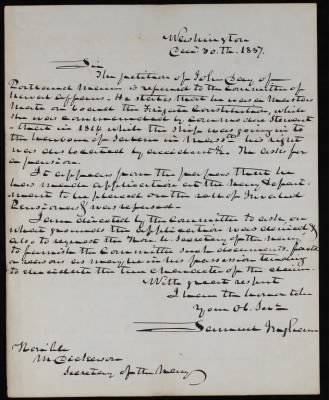 Washington
Jan. 30th. 1837.
Sir
The petition of John Day of
Portland Maine is referred to the Committee of
Naval Affairs. He states that he was a Masters
Mate on board the Frigate Constitution, while
she was commanded by Commodore Stewart
- that in 1814 while the ship was going into
the harbour of Salem in Masstts his right
was by accident &c. He asks for
a pension.
It appears from the papers that he
has made application at the Navy Depart-
ment to be placed on the roll of Invalid
Pensioners & was refused.
I am directed by the Committee to ask on
what grounds the application was denied &
also to request the Hon. Secretary of the Navy
to furnish the Committee such documents, facts
or reasons as may be in his possession tending
to elucidate the true character of the claim.
With great respect
I have the honor to be
Your Ob. Servt
Samuel Ingham
Hon'ble
M. Dickerson
Secretary of the Navy